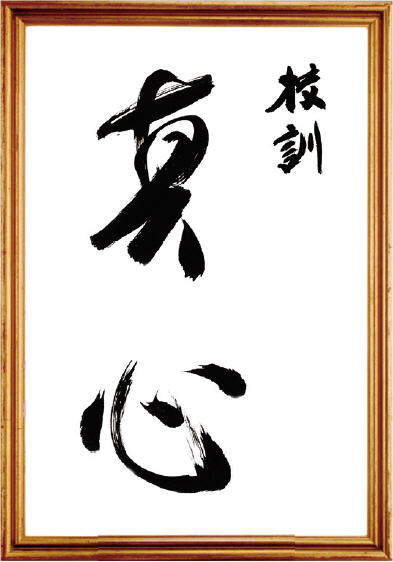 校訓
真心